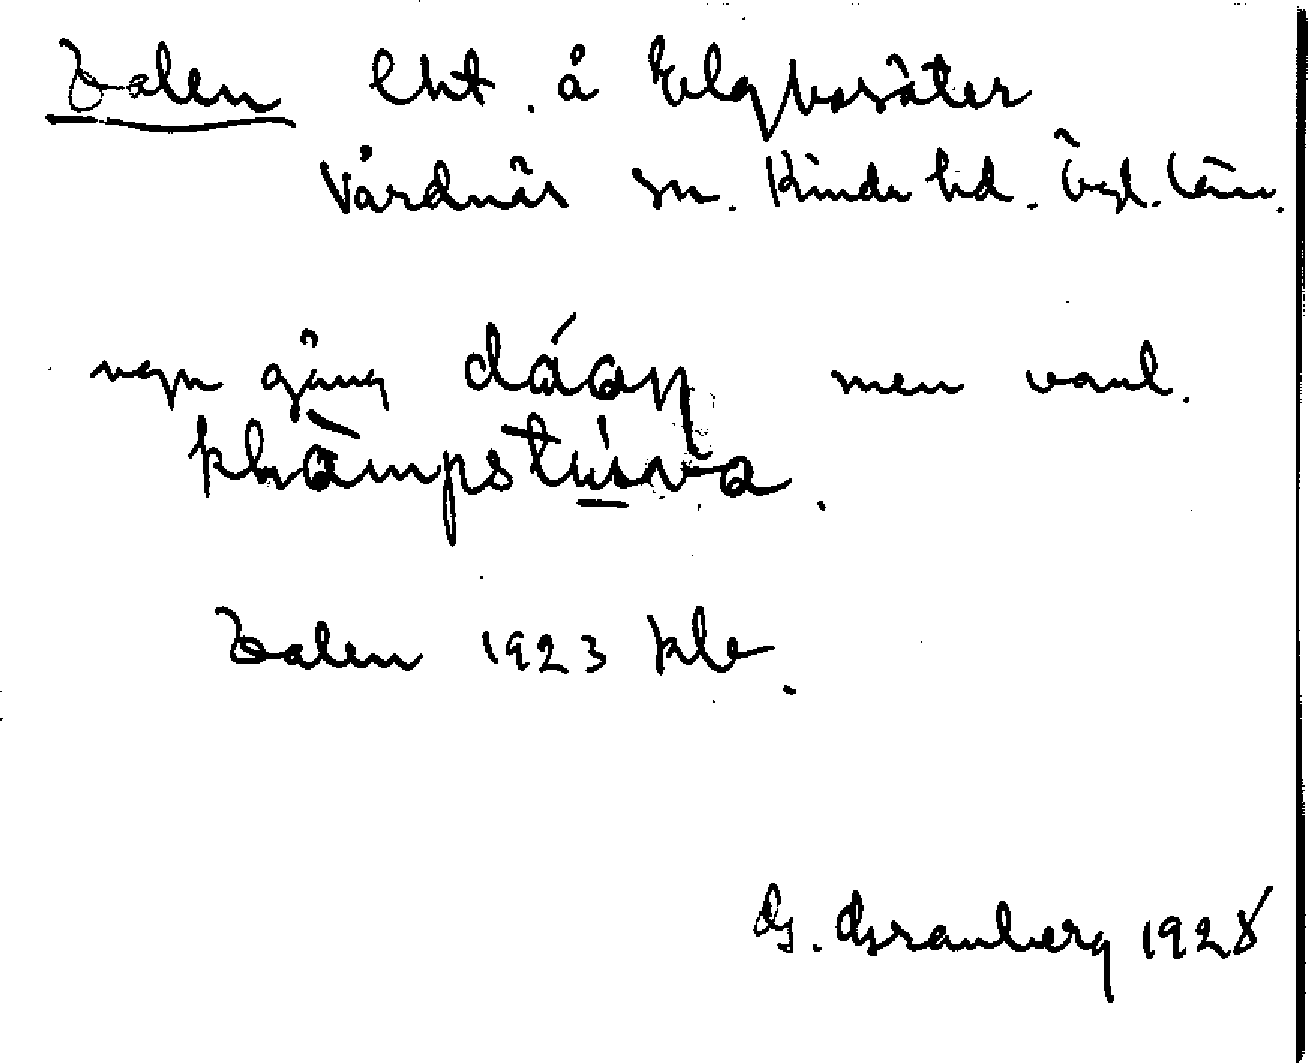 Dalen lht. å Elgvasäter
Vårdnäs sn. Kinda hd. Ögl. län.
ngn gång dáan men vanl.
khàmpstúsva.
Dalen 1923 kle.
G. Granberg 1928